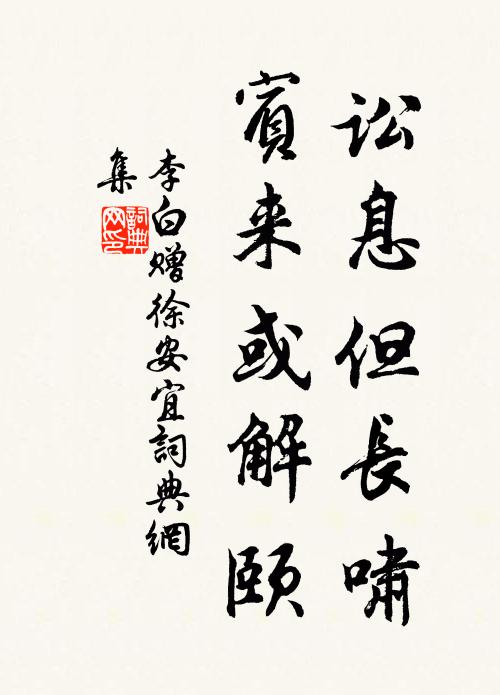 訟息但長嘯
賓来或解頤
李白贈徐安宜詞典網
集
詞典网印